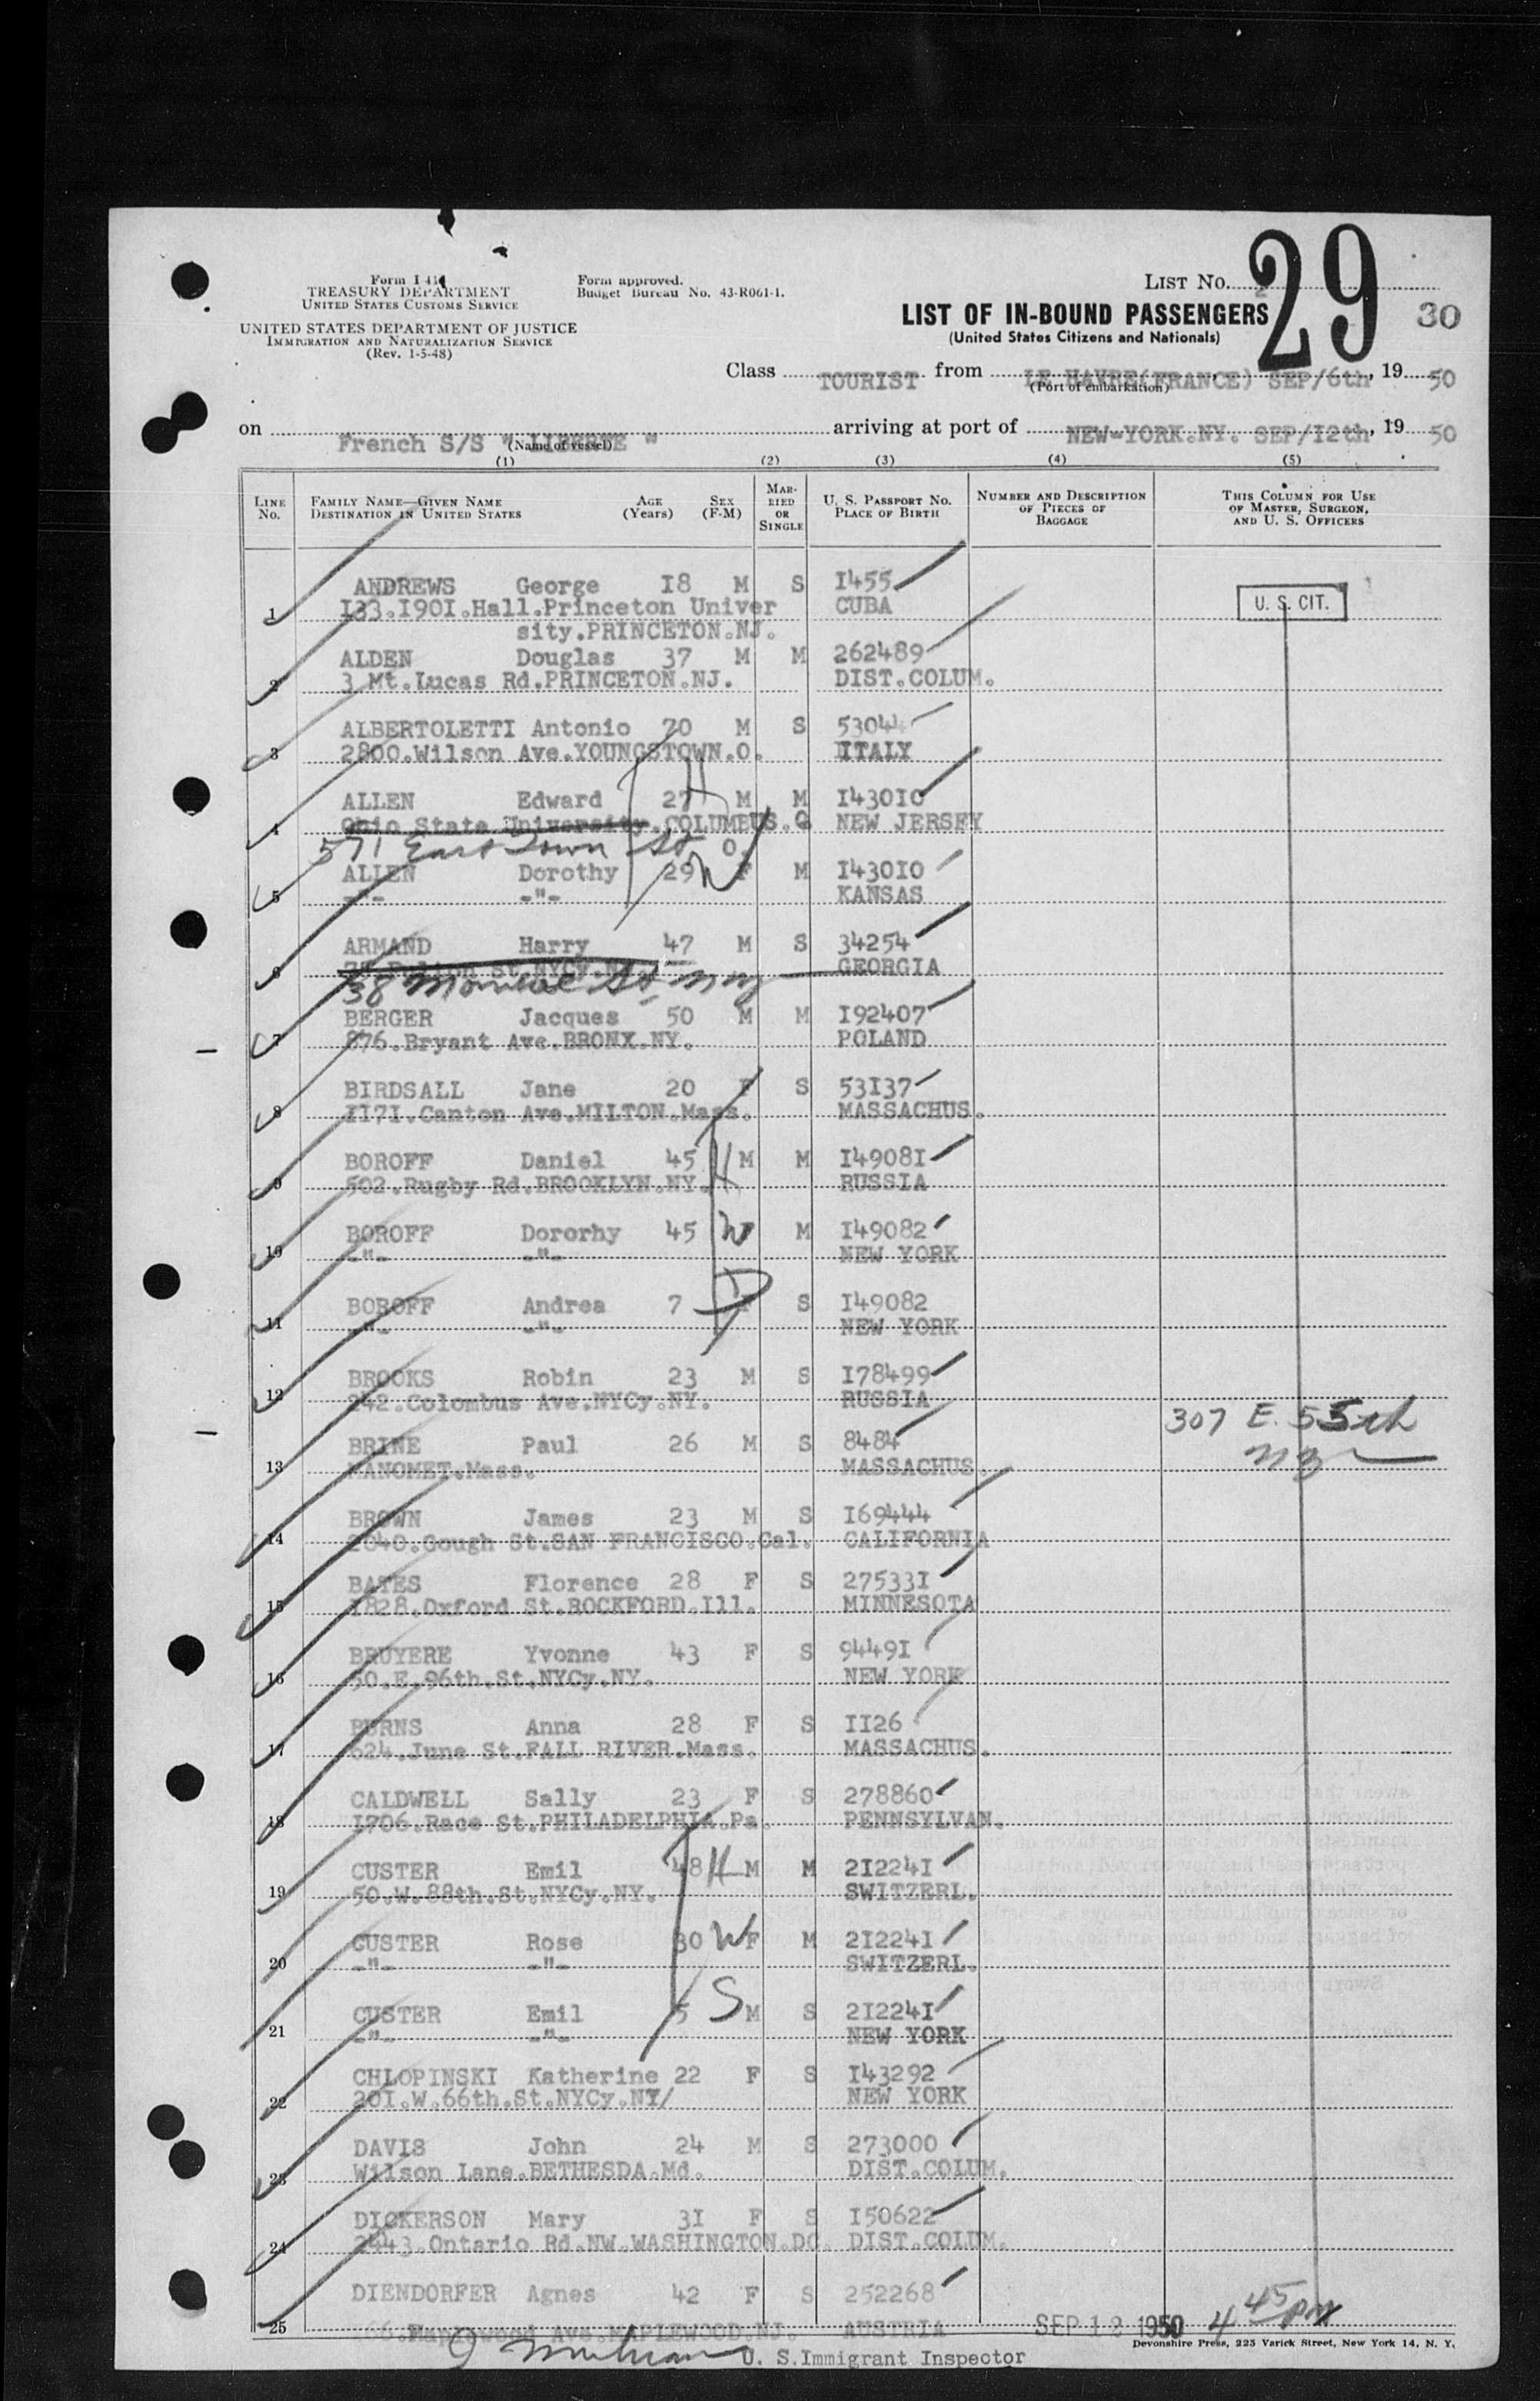 Form I-418
TREASURY DEPARTMENT
UNITED STATES CUSTOMS SERVICE
UNITED STATES DEPARTMENT OF JUSTICE
IMMIGRATION AND NATURALIZATION SERVICE
(Rev. 1-5-48)
Form approved.
Budget Bureau No. 43-R061-1.
LIST No. 2
29
30
LIST OF IN-BOUND PASSENGERS
(United States Citizens and Nationals)
Class TOURIST from LE HAVRE(FRANCE) SEP/6th, 19 50
(Port of embarkation)
on French S/S " LIBERTE " arriving at port of NEW-YORK.NY. SEP/I2th, 19 50
(Name of vessel)
(1) (2) (3) (4) (5)
LINE No. FAMILY NAME—GIVEN NAME DESTINATION IN UNITED STATES AGE (Years) SEX (F-M) MARRIED OR SINGLE U. S. PASSPORT NO. PLACE OF BIRTH NUMBER AND DESCRIPTION OF PIECES OF BAGGAGE THIS COLUMN FOR USE OF MASTER, SURGEON, AND U. S. OFFICERS
ANDREWS George I8 M S I455
1 I33.I90I.Hall.Princeton Univer CUBA U. S. CIT.
sity.PRINCETON.NJ.
ALDEN Douglas 37 M M 262489
2 3 Mt.Lucas Rd.PRINCETON.NJ. DIST.COLUM.
ALBERTOLETTI Antonio 70 M S 53044
3 2800.Wilson Ave.YOUNGSTOWN.O. ITALY
ALLEN Edward 27 H M M I430I0
4 Ohio State University.COLUMBUS.O NEW JERSEY
571 East Town St O.
ALLEN Dorothy 29 W F M I430I0
5 -"- -"- KANSAS
ARMAND Harry 47 M S 34254
6 St.NYCy.NY. GEORGIA
38 Monroe St. NY
BERGER Jacques 50 M M I92407
7 876.Bryant Ave.BRONX.NY. POLAND
BIRDSALL Jane 20 F S 53I37
8 II7I.Canton Ave.MILTON.Mass. MASSACHUS.
BOROFF Daniel 45 H M M I4908I
9 502.Rugby Rd.BROOKLYN.NY. RUSSIA
BOROFF Dororhy 45 W M I49082
10 -"- -"- NEW YORK
BOROFF Andrea 7 D F S I49082
11 -"- -"- NEW YORK
BROOKS Robin 23 M S I78499
12 242.Colombus Ave.NYCy.NY. RUSSIA
307 E. 55th
NY
BRINE Paul 26 M S 8484
13 MANOMET.Mass. MASSACHUS.
BROWN James 23 M S I69444
14 2040.Gough St.SAN FRANCISCO.Cal. CALIFORNIA
BATES Florence 28 F S 27533I
15 I828.Oxford St.ROCKFORD.Ill. MINNESOTA
BRUYERE Yvonne 43 F S 9449I
16 50.E.96th.St.NYCy.NY. NEW YORK
BURNS Anna 28 F S II26
17 624.June St.FALL RIVER.Mass. MASSACHUS.
CALDWELL Sally 23 F S 278860
18 I706.Race St.PHILADELPHIA.Pa. PENNSYLVAN.
CUSTER Emil 48 H M M 2I224I
19 50.W.88th.St.NYCy.NY. SWITZERL.
CUSTER Rose 30 W F M 2I224I
20 -"- -"- SWITZERL.
CUSTER Emil 5 S M S 2I224I
21 -"- -"- NEW YORK
CHLOPINSKI Katherine 22 F S I43292
22 20I.W.66th.St.NYCy.NY/ NEW YORK
DAVIS John 24 M S 273000
23 Wilson Lane.BETHESDA.Md. DIST.COLUM.
DICKERSON Mary 3I F S I50622
24 2443.Ontario Rd.NW.WASHINGTON.DC. DIST.COLUM.
DIENDORFER Agnes 42 F S 252268
25 66.Maplewood Ave.MAPLEWOOD.NJ. AUSTRIA SEP 12 1950 4 45 PM
Devonshire Press, 225 Varick Street, New York 14, N. Y.
U. S. Immigrant Inspector